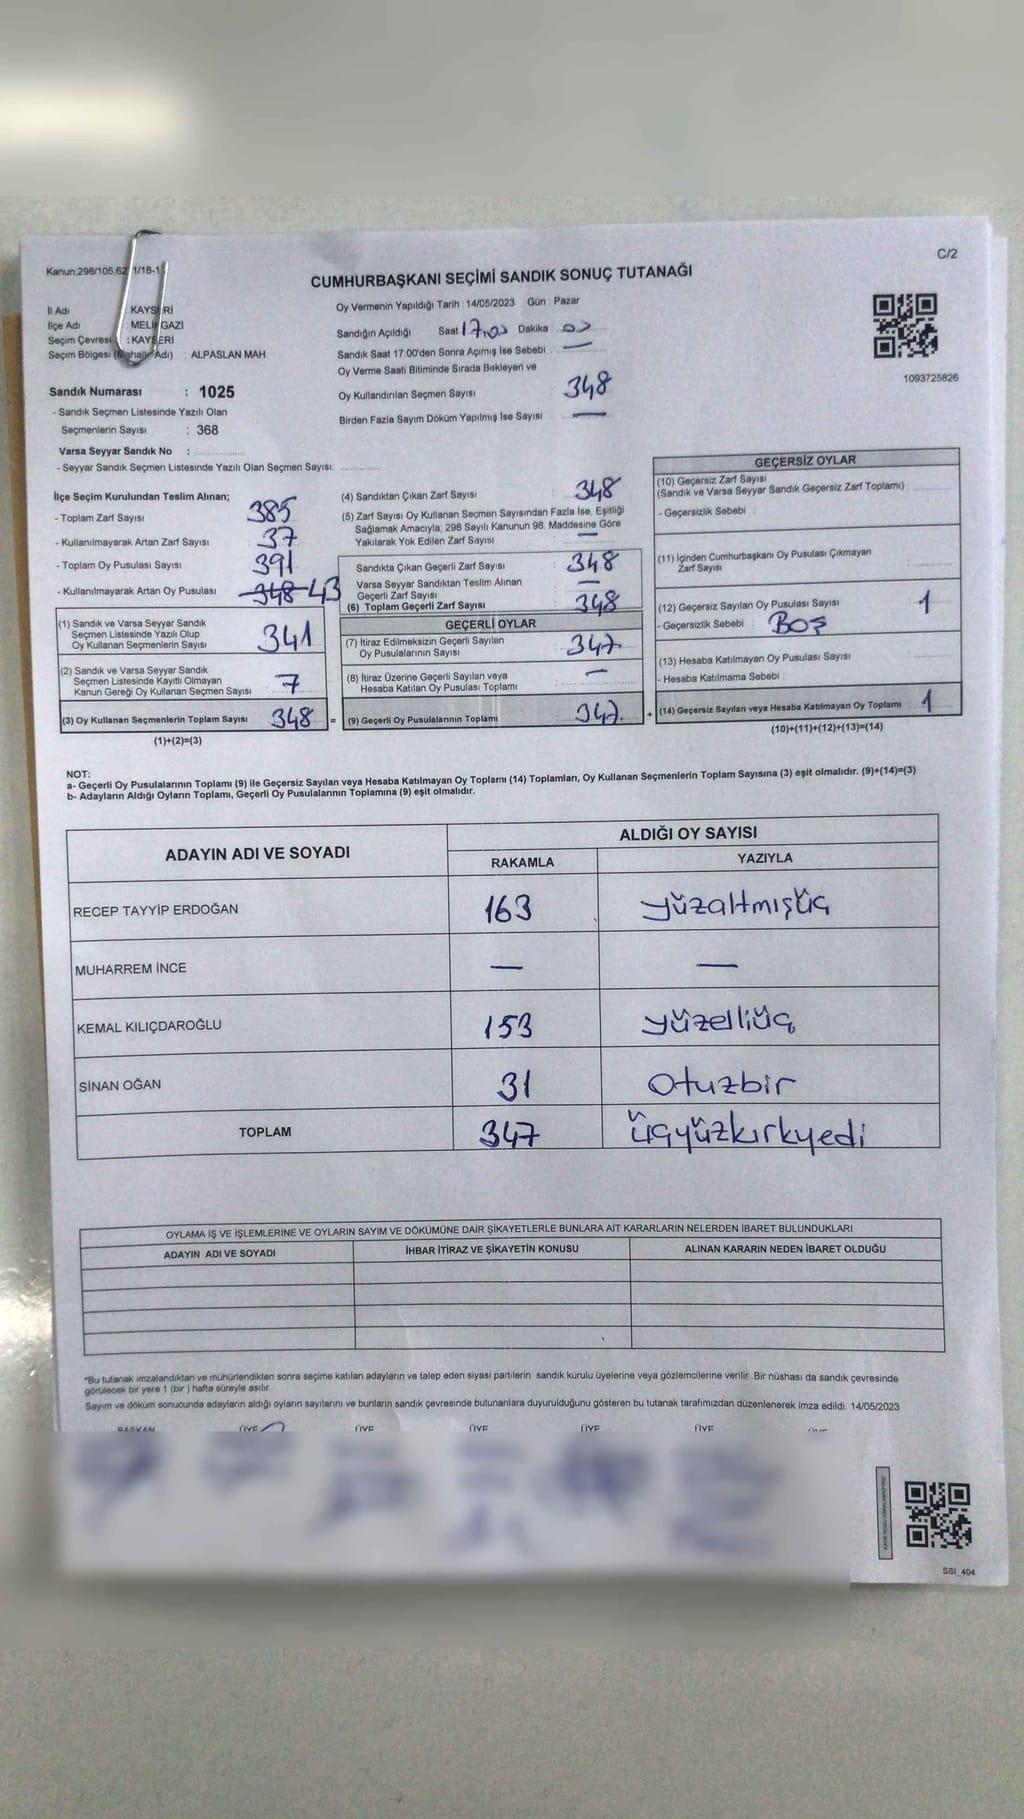 C/2
Kanun:298/105,62 1/18-1
CUMHURBAŞKANI SEÇİMİ SANDIK SONUÇ TUTANAĞI
İl Adı : KAYSERİ
İlçe Adı : MELİKGAZİ
Seçim Çevresi : KAYSERİ
Seçim Bölgesi (Mahalle Adı) : ALPASLAN MAH
Oy Vermenin Yapıldığı Tarih : 14/05/2023 Gün : Pazar
Sandığın Açıldığı Saat 17,00 Dakika : 00
Sandık Saat 17.00'den Sonra Açımış İse Sebebi : —
Oy Verme Saati Bitiminde Sırada Bekleyen ve
Oy Kullandırılan Seçmen Sayısı 348
Birden Fazla Sayım Döküm Yapılmış İse Sayısı —
1093725826
Sandık Numarası : 1025
- Sandık Seçmen Listesinde Yazılı Olan
Seçmenlerin Sayısı : 368
Varsa Seyyar Sandık No :
- Seyyar Sandık Seçmen Listesinde Yazılı Olan Seçmen Sayısı:
İlçe Seçim Kurulundan Teslim Alınan;
- Toplam Zarf Sayısı 385
- Kullanılmayarak Artan Zarf Sayısı 37
- Toplam Oy Pusulası Sayısı 391
- Kullanılmayarak Artan Oy Pusulası 348 43
(1) Sandık ve Varsa Seyyar Sandık
Seçmen Listesinde Yazılı Olup
Oy Kullanan Seçmenlerin Sayısı 341
(2) Sandık ve Varsa Seyyar Sandık
Seçmen Listesinde Kayıtlı Olmayan
Kanun Gereği Oy Kullanan Seçmen Sayısı : 7
(3) Oy Kullanan Seçmenlerin Toplam Sayısı : 348 =
(1)+(2)=(3)
(4) Sandıktan Çıkan Zarf Sayısı : 348
(5) Zarf Sayısı Oy Kullanan Seçmen Sayısından Fazla İse, Eşitliği
Sağlamak Amacıyla; 298 Sayılı Kanunun 98. Maddesine Göre
Yakılarak Yok Edilen Zarf Sayısı —
Sandıkta Çıkan Geçerli Zarf Sayısı : 348
Varsa Seyyar Sandıktan Teslim Alınan
Geçerli Zarf Sayısı —
(6) Toplam Geçerli Zarf Sayısı 348
GEÇERLİ OYLAR
(7) İtiraz Edilmeksizin Geçerli Sayılan
Oy Pusulalarının Sayısı : 347
(8) İtiraz Üzerine Geçerli Sayılan veya
Hesaba Katılan Oy Pusulası Toplamı —
(9) Geçerli Oy Pusulalarının Toplamı 347 +
GEÇERSİZ OYLAR
(10) Geçersiz Zarf Sayısı
(Sandık ve Varsa Seyyar Sandık Geçersiz Zarf Toplamı) :
- Geçersizlik Sebebi :
(11) İçinden Cumhurbaşkanı Oy Pusulası Çıkmayan
Zarf Sayısı
(12) Geçersiz Sayılan Oy Pusulası Sayısı 1
- Geçersizlik Sebebi : BOŞ
(13) Hesaba Katılmayan Oy Pusulası Sayısı
- Hesaba Katılmama Sebebi :
(14) Geçersiz Sayılan veya Hesaba Katılmayan Oy Toplamı 1
(10)+(11)+(12)+(13)=(14)
NOT:
a- Geçerli Oy Pusulalarının Toplamı (9) ile Geçersiz Sayılan veya Hesaba Katılmayan Oy Toplamı (14) Toplamları, Oy Kullanan Seçmenlerin Toplam Sayısına (3) eşit olmalıdır. (9)+(14)=(3)
b- Adayların Aldığı Oyların Toplamı, Geçerli Oy Pusulalarının Toplamına (9) eşit olmalıdır.
ADAYIN ADI VE SOYADI ALDIĞI OY SAYISI
RAKAMLA YAZIYLA
RECEP TAYYİP ERDOĞAN 163 yüzaltmışüç
MUHARREM İNCE — —
KEMAL KILIÇDAROĞLU 153 yüzelliüç
SİNAN OĞAN 31 Otuzbir
TOPLAM 347 üçyüzkırkyedi
OYLAMA İŞ VE İŞLEMLERİNE VE OYLARIN SAYIM VE DÖKÜMÜNE DAİR ŞİKAYETLERLE BUNLARA AİT KARARLARIN NELERDEN İBARET BULUNDUKLARI
ADAYIN ADI VE SOYADI İHBAR İTİRAZ VE ŞİKAYETİN KONUSU ALINAN KARARIN NEDEN İBARET OLDUĞU
"Bu tutanak imzalandıktan ve mühürlendikten sonra seçime katılan adayların ve talep eden siyasi partilerin sandık kurulu üyelerine veya gözlemcilerine verilir. Bir nüshası da sandık çevresinde
görülecek bir yere 1 (bir ) hafta süreyle asılır.
Sayım ve döküm sonucunda adayların aldığı oyların sayılarını ve bunların sandık çevresinde bulunanlara duyurulduğunu gösteren bu tutanak tarafımızdan düzenlenerek imza edildi. 14/05/2023
BAŞKAN ÜYE ÜYE ÜYE ÜYE ÜYE
SSI_404